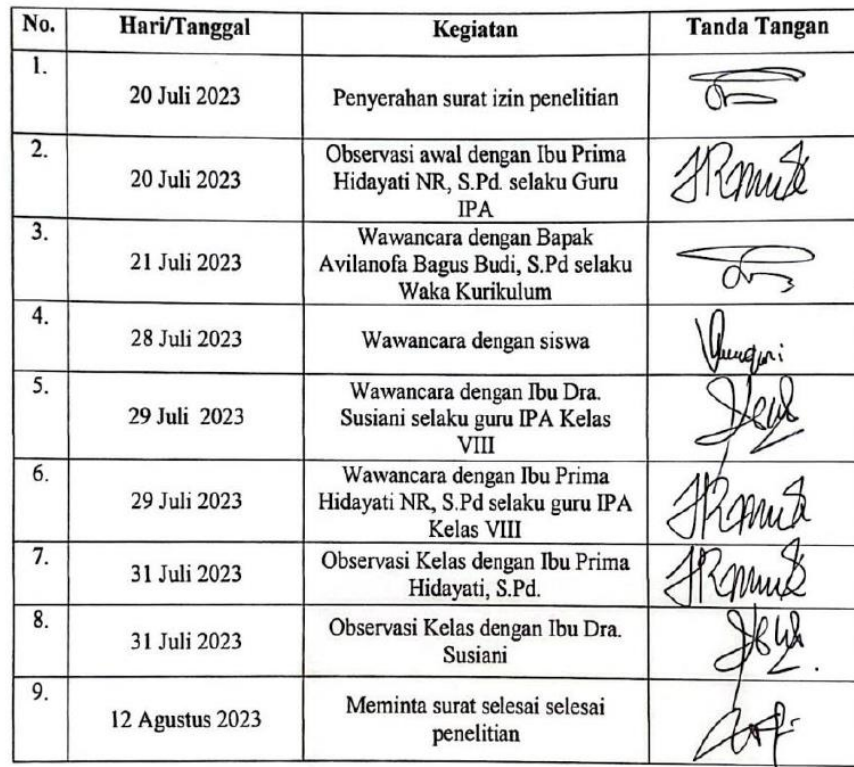 No. Hari/Tanggal Kegiatan Tanda Tangan
1.
20 Juli 2023 Penyerahan surat izin penelitian
2.
20 Juli 2023
Observasi awal dengan Ibu Prima
Hidayati NR, S.Pd. selaku Guru
IPA
3.
21 Juli 2023
Wawancara dengan Bapak
Avilanofa Bagus Budi, S.Pd selaku
Waka Kurikulum
4.
28 Juli 2023 Wawancara dengan siswa
5.
29 Juli 2023
Wawancara dengan Ibu Dra.
Susiani selaku guru IPA Kelas
VIII
6.
29 Juli 2023
Wawancara dengan Ibu Prima
Hidayati NR, S.Pd selaku guru IPA
Kelas VIII
7.
31 Juli 2023
Observasi Kelas dengan Ibu Prima
Hidayati, S.Pd.
8.
31 Juli 2023
Observasi Kelas dengan Ibu Dra.
Susiani
9.
12 Agustus 2023
Meminta surat selesai selesai
penelitian